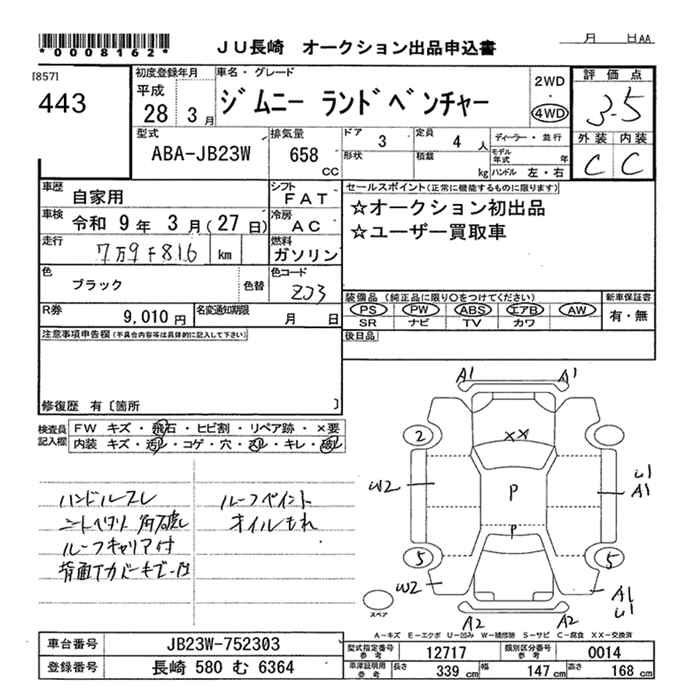 *0008162*
JU長崎 オークション出品申込書
月 日AA
[857]
443
初度登録年月
平成
28 3月
車名・グレード
ジムニー ランドベンチャー
2WD
4WD
評価点
3.5
外装 内装
C C
型式
ABA-JB23W
排気量
658
cc
ドア
3
定員
4人
ディーラー・並行
形状
積載
kg
モデル年式
年
ハンドル 左・右
車歴
自家用
シフト
FAT
セールスポイント(正常に機能するものに限ります)
☆オークション初出品
☆ユーザー買取車
車検
令和 9年 3月(27日)
冷房
AC
走行
7万9千816
km
燃料
ガソリン
色
ブラック
色替
色コード
ZJ3
R券
9,010円
名変通知期限
月 日
装備品(純正品に限り○をつけてください)
新車保証書
PS PW ABS エアB AW
SR ナビ TV カワ
有・無
注意事項申告欄(不具合内容等は具体的に記入して下さい)
後日品
修復歴 有〔箇所 〕
検査員記入欄
FW キズ・飛石・ヒビ割・リペア跡・×要
内装 キズ・汚レ・コゲ・穴・スレ・キレ・破レ
ハンドルスレ
ルーフペイント
オイルもれ
ルーフキャリア付
A1 A1
2
XX
W2
P
U1
A1
P
5 5
W2
A1
U1
A2 A2
スペア
A-キズ E-エクボ U-凹み W-補修跡 S-サビ C-腐食 XX-交換済
車台番号
JB23W-752303
型式指定番号
参考
12717
類別区分番号
参考
0014
登録番号
長崎 580 む 6364
車庫証明用
参考
長さ
339 cm
幅
147 cm
高さ
168 cm